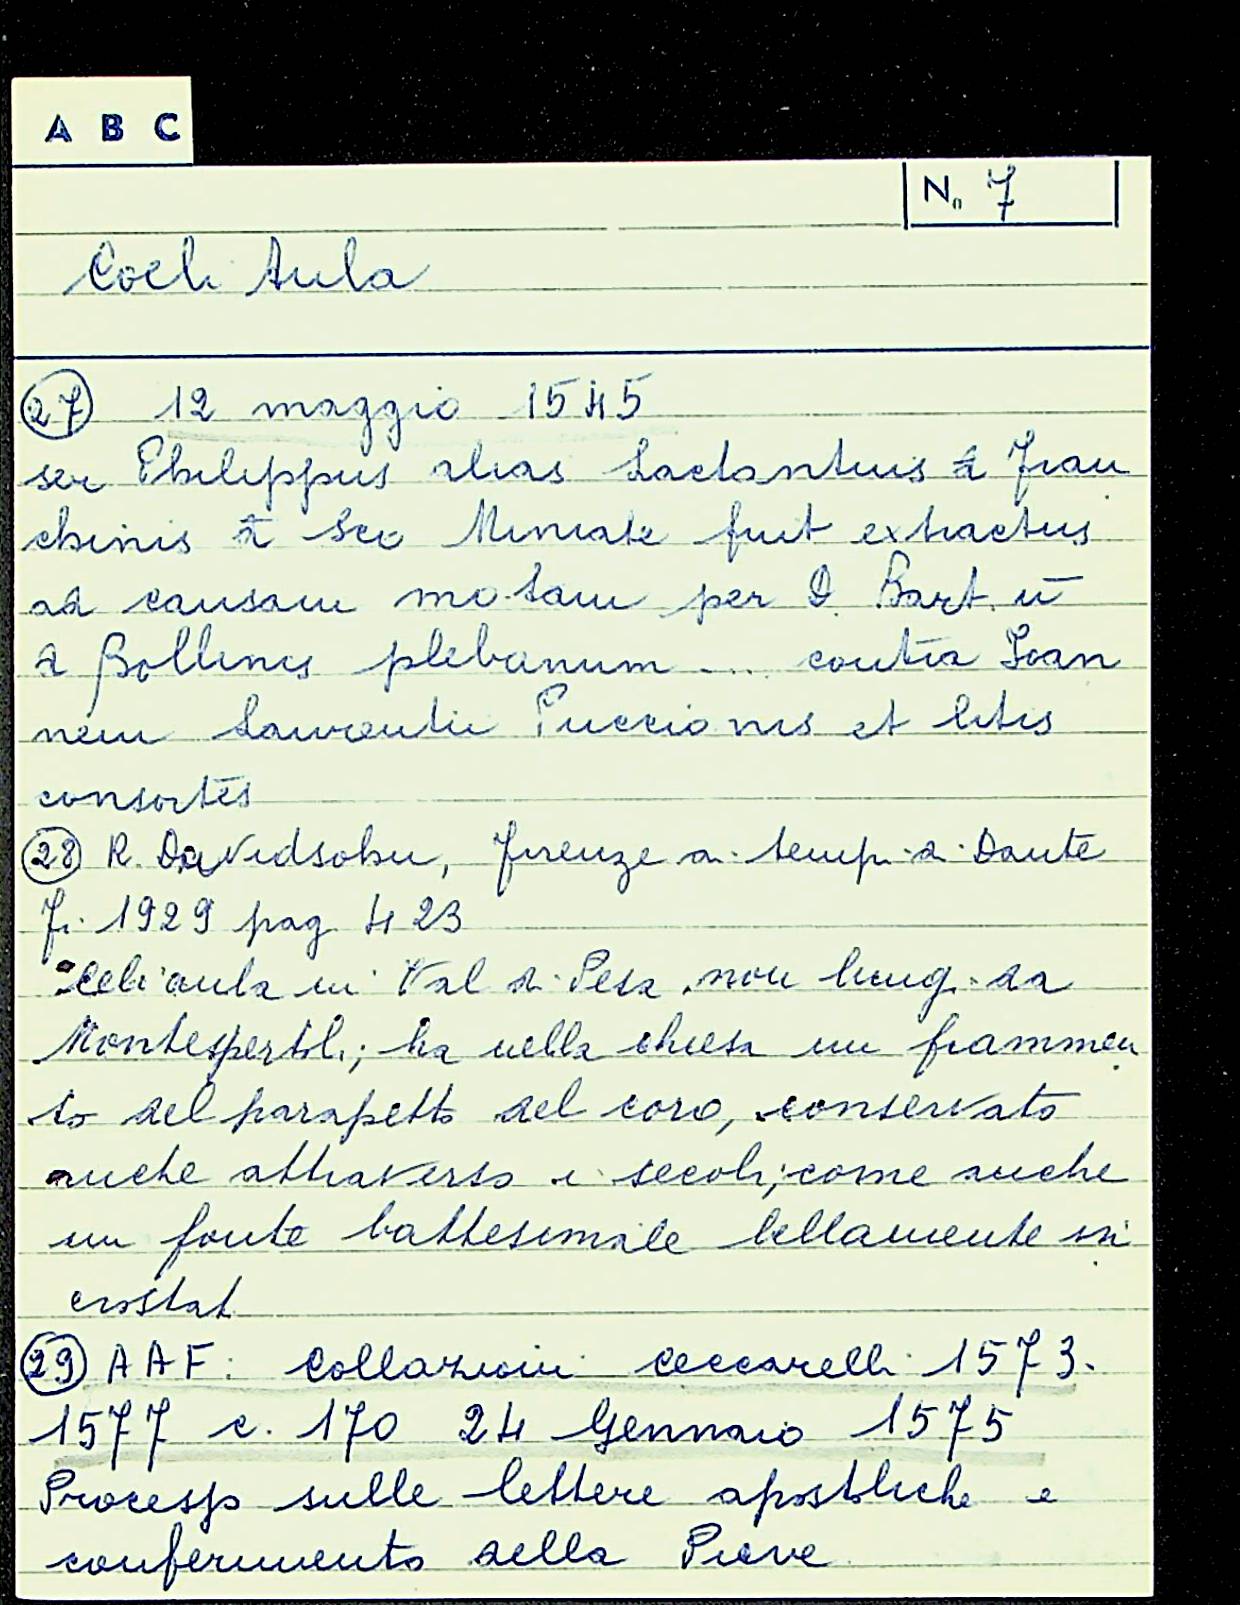 A B C
N. 7
Coeli Aula
27 12 maggio 1545
ser Philippus alias Lactantius d Fran
chinis d Sco Miniate fuit extractus
ad causam motam per D. Bart. ū
d Bollinis plebanum ... contra Joan
nem Laurentii Puccionis et litis
consortes
28 R. Davidsohn, Firenze ai tempi di Dante
Fi. 1929 pag. 423
Celi aula in Val di Pesa non lungi da
Montespertoli; ha nella chiesa un frammen
to del parapetto del coro, conservato
anche attraverso i secoli; come anche
un fonte battesimale bellamente in
crostat
29 AAF: Collazioni Ceccarelli 1573-
1577 c. 170 24 Gennaio 1575
Processo sulle lettere apostoliche e
conferimento della Pieve